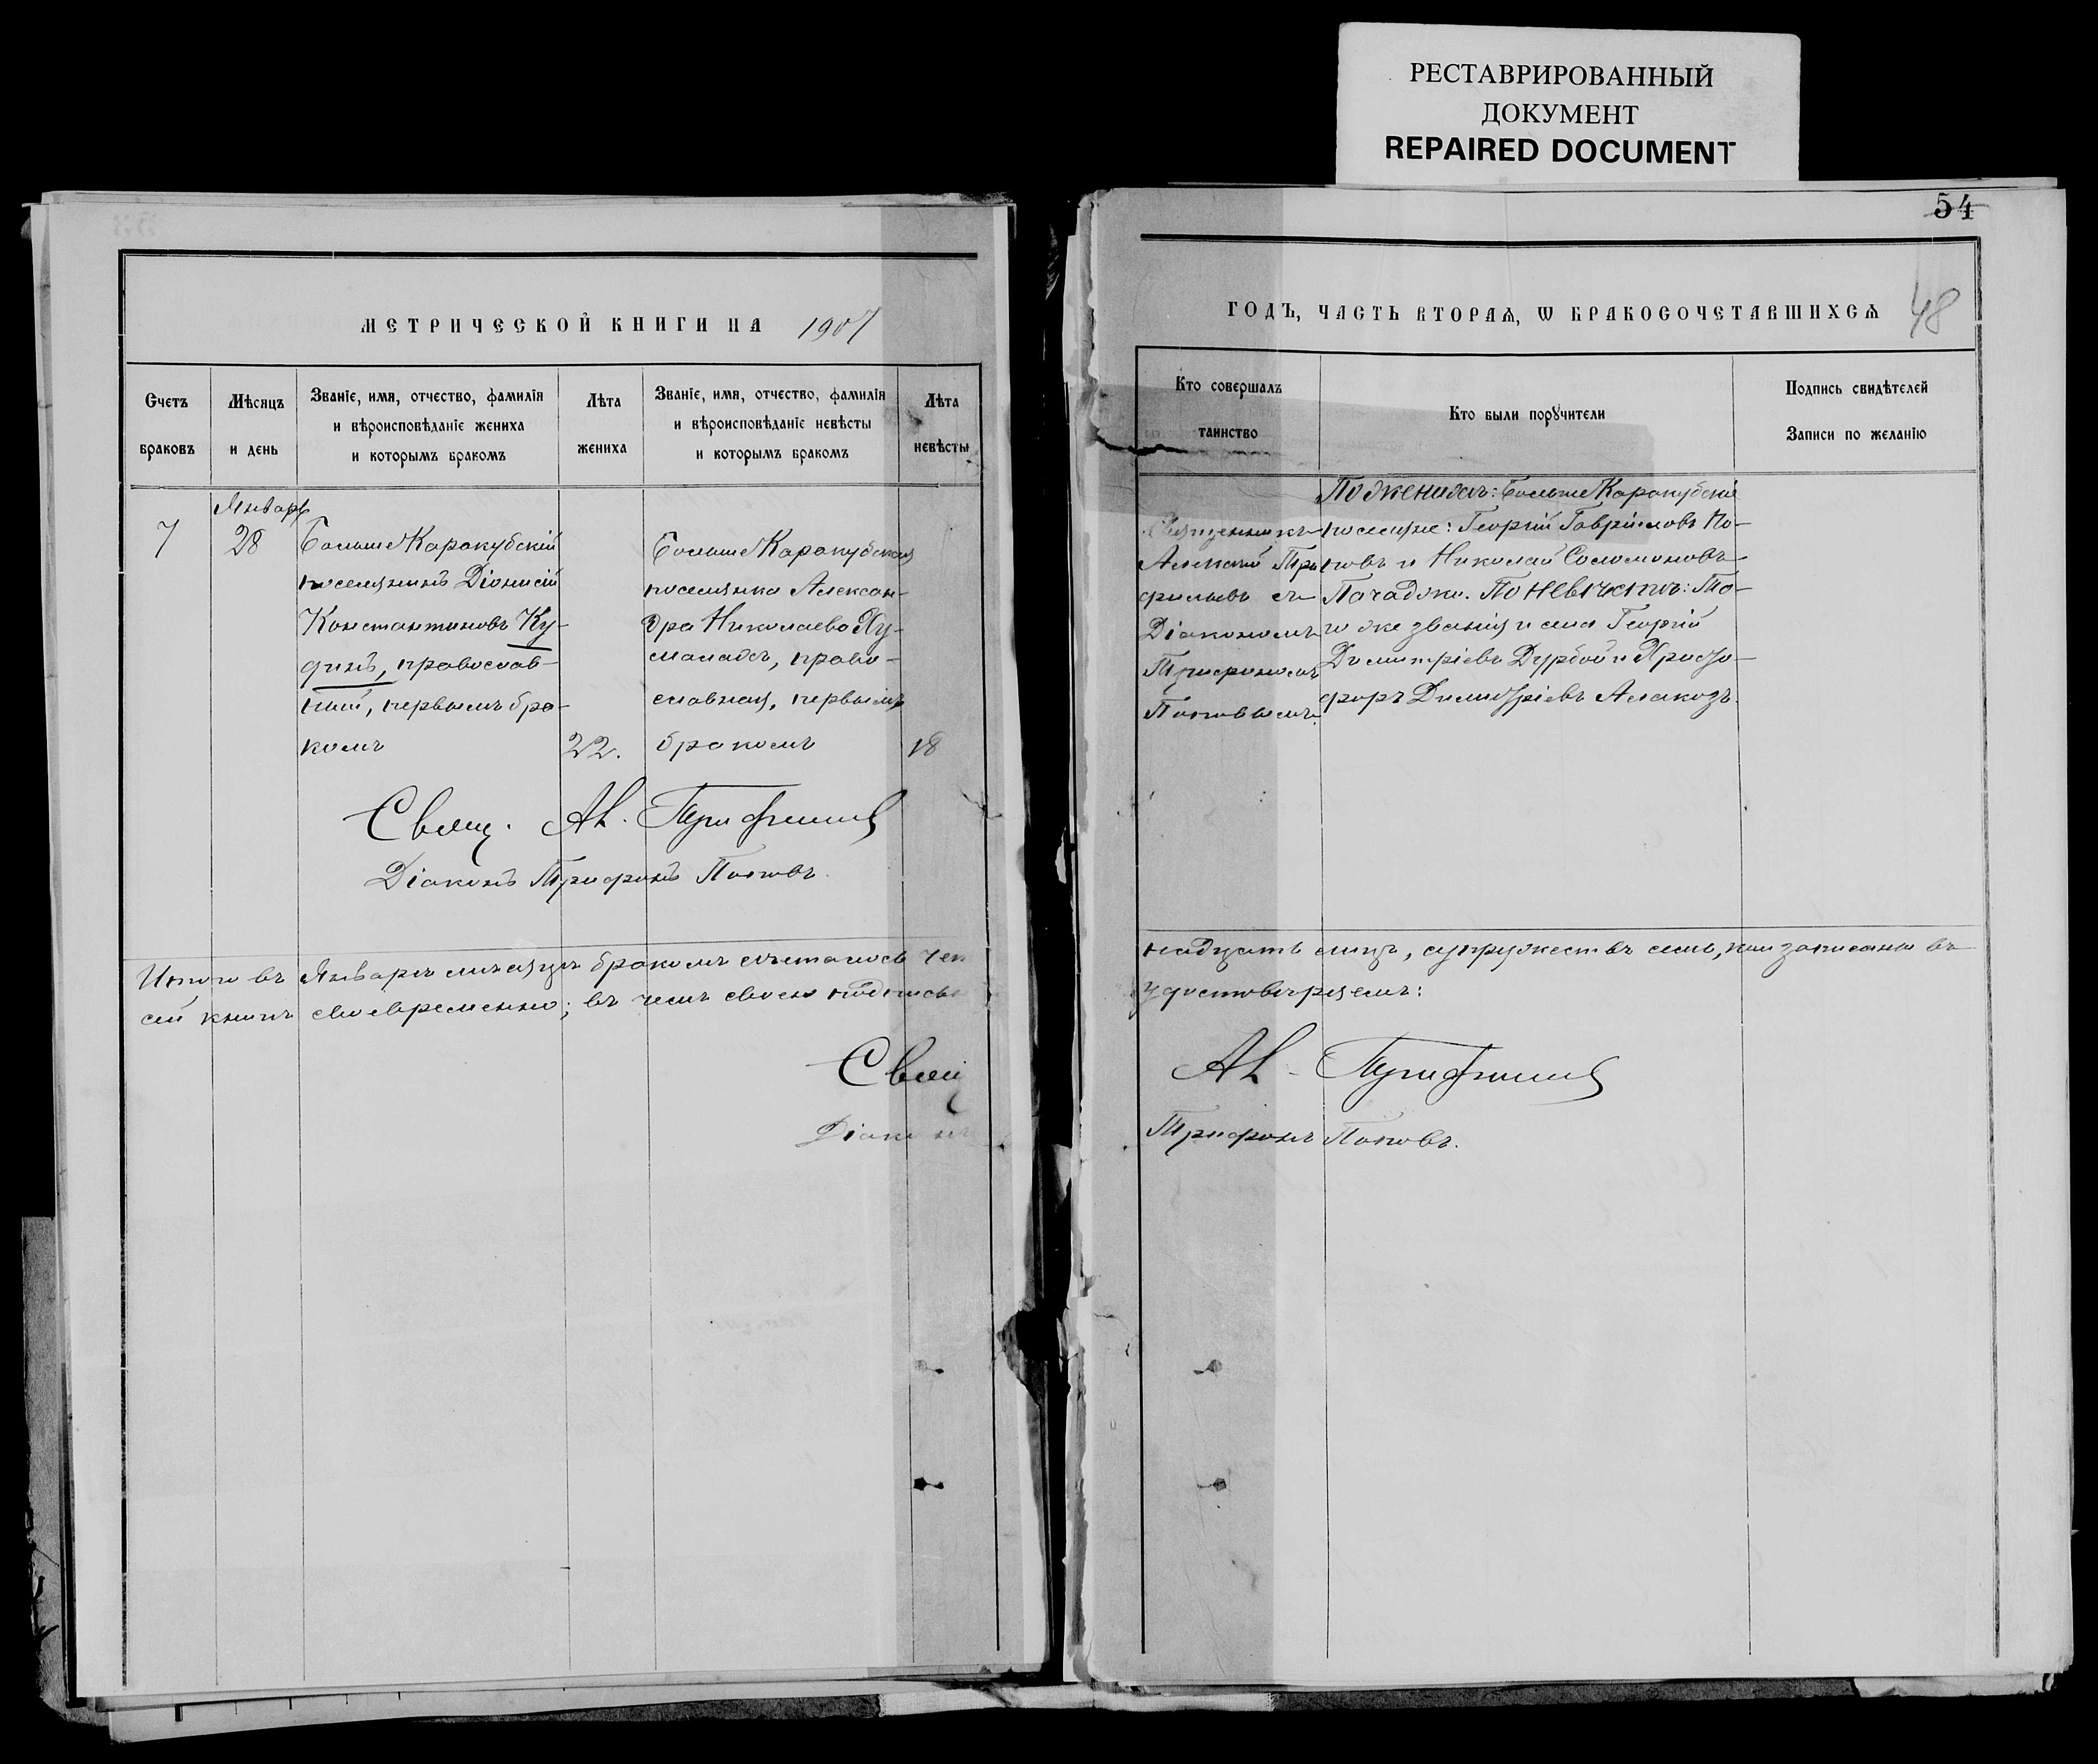 РЕСТАВРИРОВАННЫЙ
ДОКУМЕНТ
REPAIRED DOCUMENT
МЕТРИЧЕСКОЙ КНИГИ НА 1907
Счетъ
браковъ
Мѣсяцъ
и день
Званіе, имя, отчество, фамилія
и вѣроисповѣданіе жениха
и которымъ бракомъ
Лѣта
жениха
Званіе, имя, отчество, фамилія
и вѣроисповѣданіе невѣсты
и которымъ бракомъ
Лѣта
невѣсты
7
Январь
28
Больше Каракубскій
поселянинъ Діонисій
Константиновъ Ку-
динъ, православ-
ный, первымъ бра-
комъ
22.
Больше Каракубская
поселянка Алексан-
дра Николаева Ху-
маладъ, право-
славная, первымъ
бракомъ
18
Свящ. Ал. Трифильевъ
Діаконъ Трифонъ Поповъ.
Итого въ Январѣ мѣсяцѣ бракомъ сочеталось чет
сей книгѣ своевременно; въ чемъ своею подписью
Свящ
Діаконъ
54
48
ГОДЪ, ЧАСТЬ ВТОРАѦ, Ѡ БРАКОСОЧЕТАВШИХСѦ
Кто совершалъ
таинство
Кто были порꙋчители
Подпись свидѣтелей
Записи по желанію
Священникъ
Алексій Три
фильевъ съ
Діакономъ
Трифономъ
Поповымъ.
По женихѣ: Больше Каракубскіе
поселяне: Георгій Гавріиловъ По-
повъ и Николай Соломоновъ
Почаджи. По невѣстѣ: То-
го же званія и села Георгій
Димитріевъ Дурбой и Христо-
форъ Димитріевъ Алакозъ.
надцать лицъ, супружествъ семь, кои записаны въ
удостовѣряемъ:
Ал. Трифильевъ
Трифонъ Поповъ.